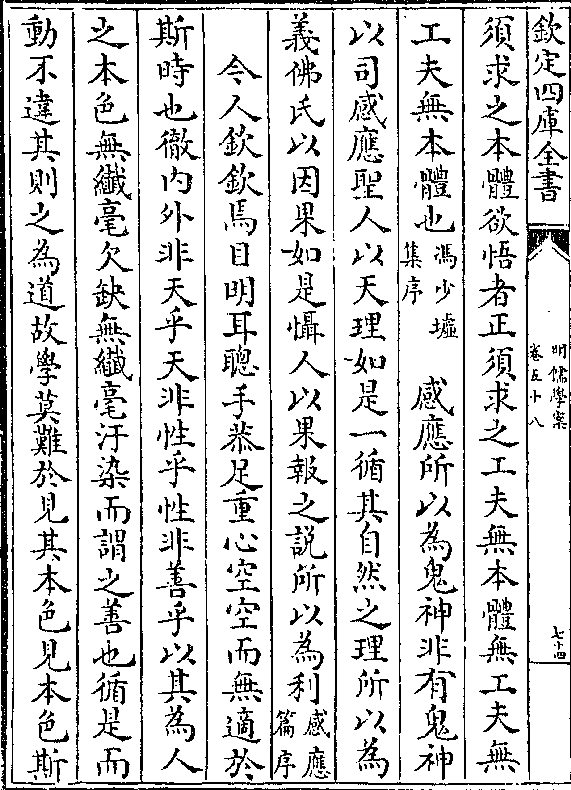 欽定四庫全書
明儒學案
卷五十八
七十四
須求之本體欲悟者正須求之工夫無本體無工夫無
工夫無本體也馮少墟集序 感應所以為鬼神非有鬼神
以司感應聖人以天理如是一循其自然之理所以為
義佛氏以因果如是懾人以果報之説所以為利感應篇序
今人欽欽焉目明耳聰手恭足重心空空而無適於
斯時也徹内外非天乎天非性乎性非善乎以其為人
之本色無纖毫欠缺無纖毫汙染而謂之善也循是而
動不違其則之為道故學莫難於見其本色見本色斯